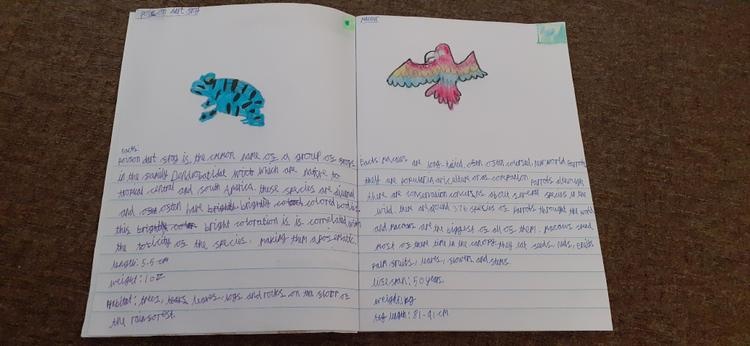 poison dart frog
facts
poison dart frog is the common name of a group of frogs
in the family Dendrobatidae which are native to
tropical central and south America. these species are diurnal
and often have brightly colored bodies
this bright coloration is is correlated with
the toxicity of the species, making them aposematic.
length: 5.5 cm
weight: 1 oz
Habitat: trees, leaves, logs and rocks on the floor of
the rainforest.
macaw
Facts Macaws are long-tailed, often colorful, new world parrots
they are popular in aviculture or as companion parrots although
there are conservation concerns about several species in the
wild. there are around 376 species of parrots throught the world
and macaws are the biggest of all of them. macaws spend
most of their time in the canopy they eat seeds, nuts, fruits
palm fruits, leaves, flowers and stems.
life span: 50 years
weight: kg
length: 81-91 cm